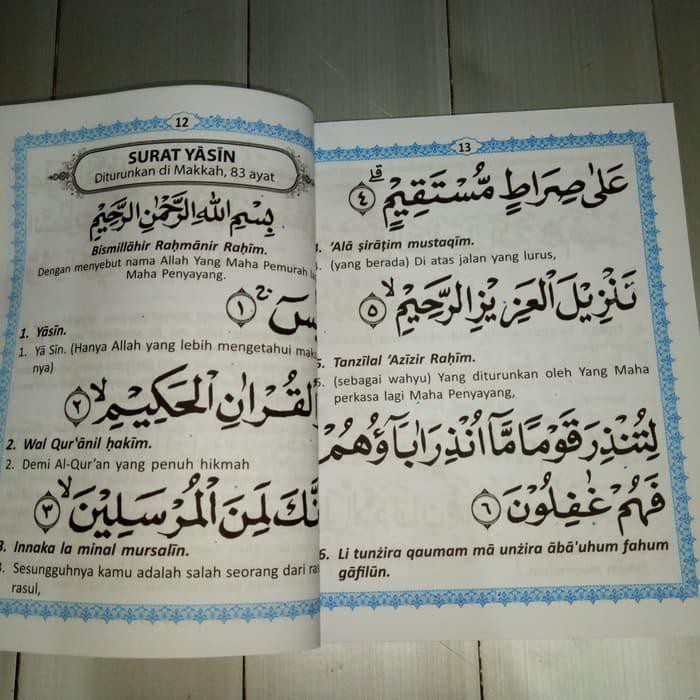 12
SURAT YĀSĪN
Diturunkan di Makkah, 83 ayat
بِسْمِ اللهِ الرَّحْمٰنِ الرَّحِيْمِ
Bismillāhir Raḥmānir Raḥīm.
Dengan menyebut nama Allah Yang Maha Pemurah
Maha Penyayang.
١
1. Yāsīn.
1. Yā Sīn. (Hanya Allah yang lebih mengetahui
nya)
الْقُرْاٰنِ الْحَكِيْمِۙ ٢
2. Wal Qur'ānil ḥakīm.
2. Demi Al-Qur'an yang penuh hikmah
لَمِنَ الْمُرْسَلِيْنَۙ ٣
3. Innaka la minal mursalīn.
Sesungguhnya kamu adalah salah seorang dari
rasul,
13
عَلٰى صِرَاطٍ مُّسْتَقِيْمٍۗ ٤
'Alā ṣirāṭim mustaqīm.
(yang berada) Di atas jalan yang lurus,
تَنْزِيْلَ الْعَزِيْزِ الرَّحِيْمِۙ ٥
5. Tanzīlal 'Azīzir Raḥīm.
5. (sebagai wahyu) Yang diturunkan oleh Yang Maha
perkasa lagi Maha Penyayang,
لِتُنْذِرَ قَوْمًا مَّآ اُنْذِرَ اٰبَاۤؤُهُمْ
فَهُمْ غٰفِلُوْنَ ٦
6. Li tunżira qaumam mā unżira ābā'uhum fahum
gāfilūn.